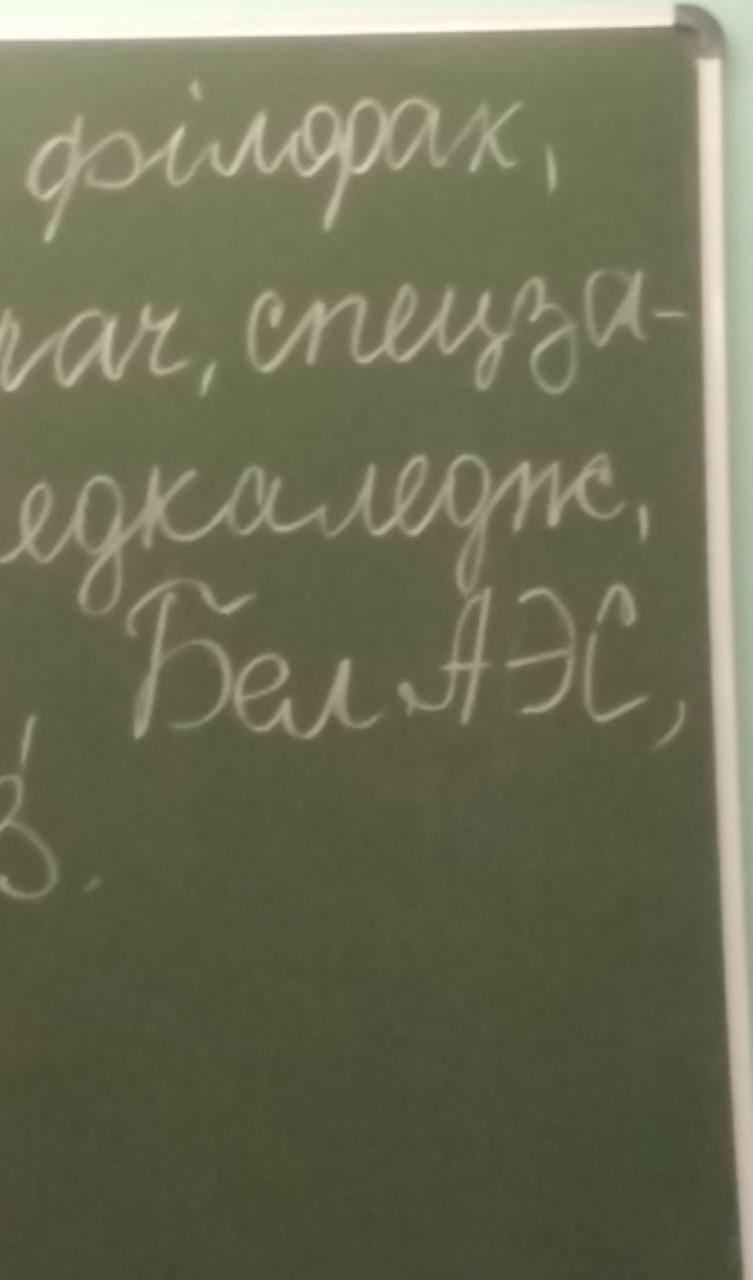 філфак,
гач, спецза-
едкаледж,
БелАЭС,
в.